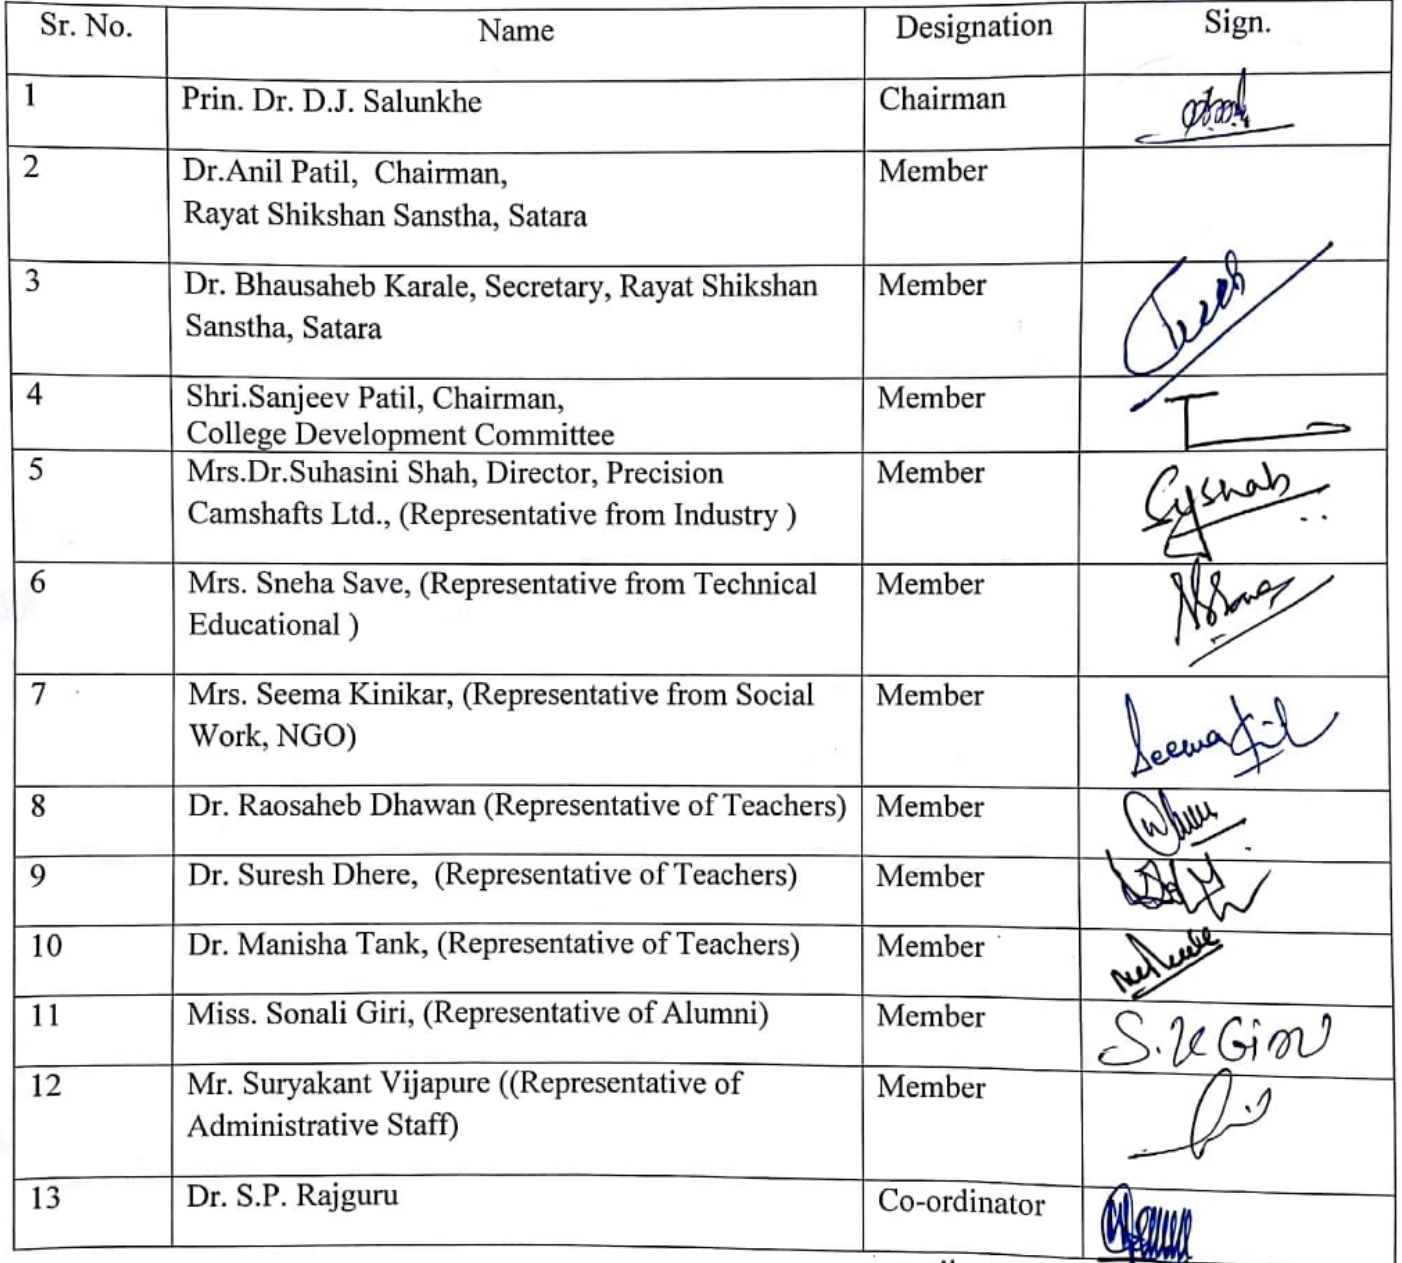 Sr. No. Name Designation Sign.
1 Prin. Dr. D.J. Salunkhe Chairman
2 Dr.Anil Patil, Chairman, Member
Rayat Shikshan Sanstha, Satara
3 Dr. Bhausaheb Karale, Secretary, Rayat Shikshan Member
Sanstha, Satara
4 Shri.Sanjeev Patil, Chairman, Member
College Development Committee
5 Mrs.Dr.Suhasini Shah, Director, Precision Member
Camshafts Ltd., (Representative from Industry )
6 Mrs. Sneha Save, (Representative from Technical Member
Educational )
7 Mrs. Seema Kinikar, (Representative from Social Member
Work, NGO) Seema
8 Dr. Raosaheb Dhawan (Representative of Teachers) Member
9 Dr. Suresh Dhere, (Representative of Teachers) Member
10 Dr. Manisha Tank, (Representative of Teachers) Member
11 Miss. Sonali Giri, (Representative of Alumni) Member S.K Giri
12 Mr. Suryakant Vijapure ((Representative of Member
Administrative Staff)
13 Dr. S.P. Rajguru Co-ordinator